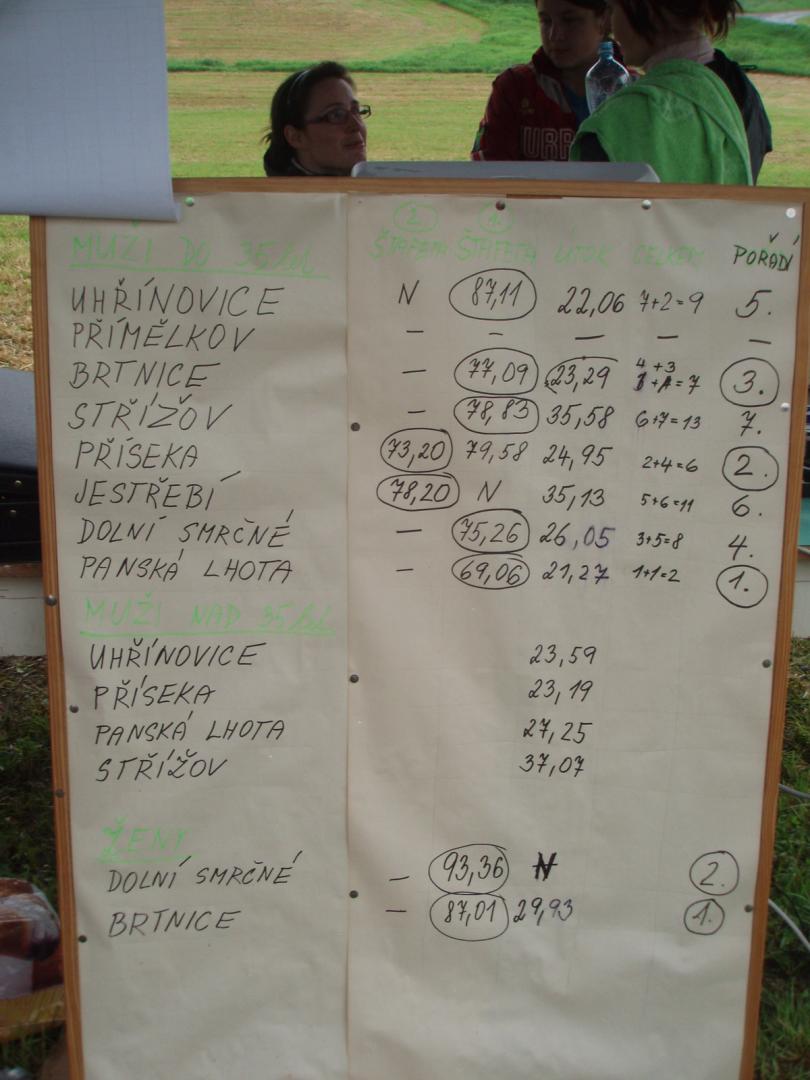 URB
2. 1.
MUŽI DO 35 let ŠTAFETA ŠTAFETA ÚTOK CELKEM POŘADÍ
UHŘÍNOVICE N 87,11 22,06 7+2=9 5.
PŘÍMĚLKOV – – – – –
BRTNICE – 77,09 23,29 4+3=7 3.
STŘÍŽOV – 78,83 35,58 6+7=13 7.
PŘÍSEKA 73,20 79,58 24,95 2+4=6 2.
JESTŘEBÍ 78,20 N 35,13 5+6=11 6.
DOLNÍ SMRČNÉ – 75,26 26,05 3+5=8 4.
PANSKÁ LHOTA – 69,06 21,27 1+1=2 1.
MUŽI NAD 35 let
UHŘÍNOVICE 23,59
PŘÍSEKA 23,19
PANSKÁ LHOTA 27,25
STŘÍŽOV 37,07
ŽENY
DOLNÍ SMRČNÉ – 93,36 N 2.
BRTNICE – 87,01 29,93 1.